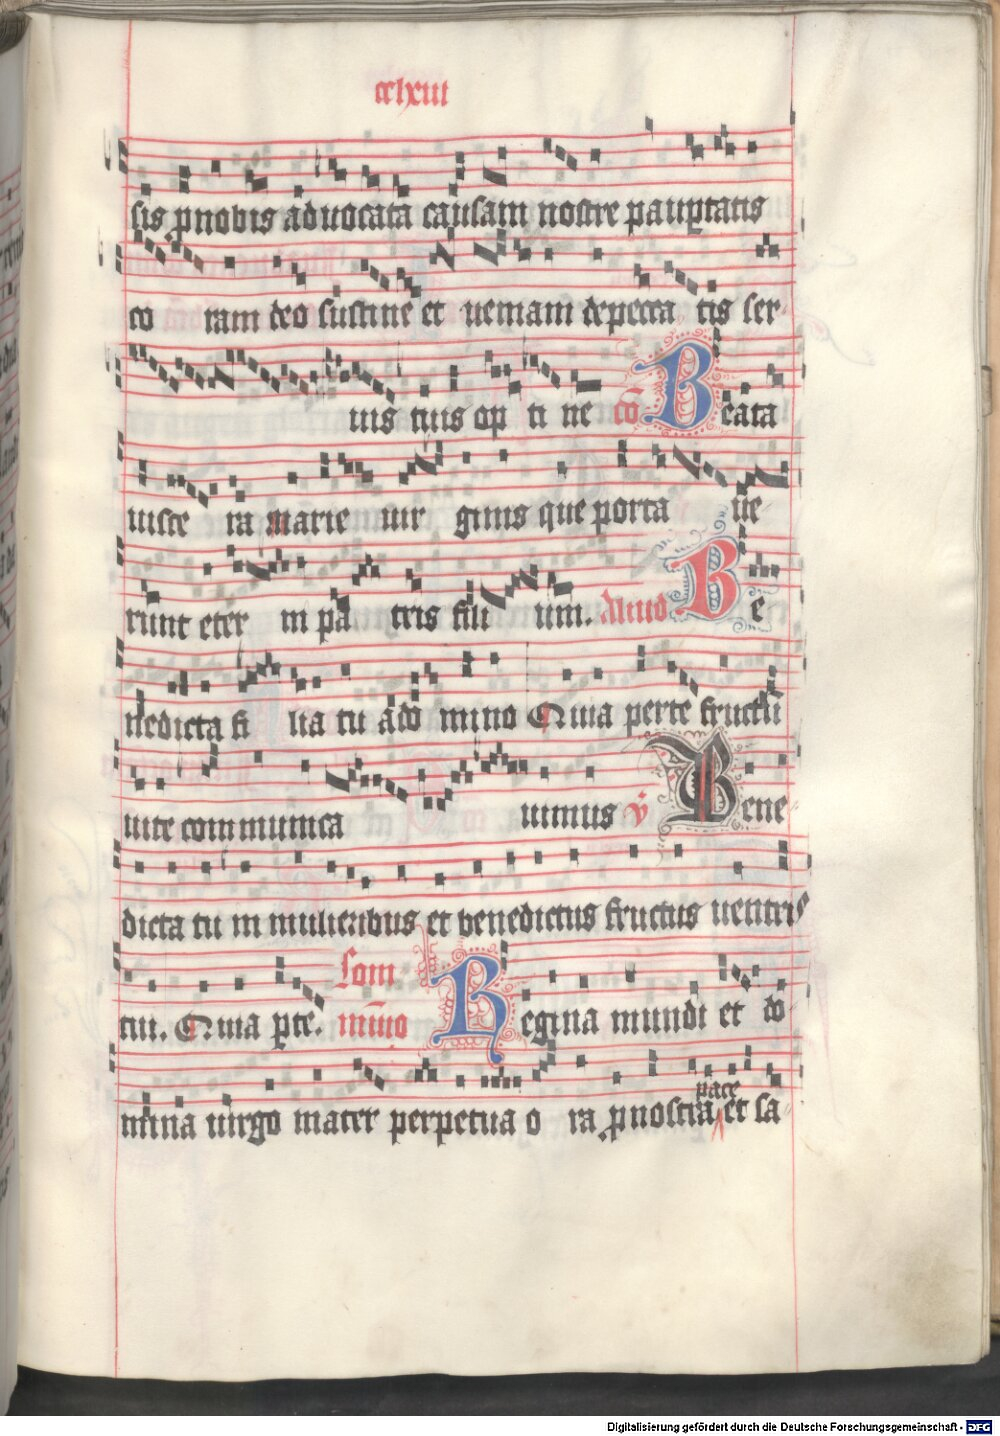 cclxiii
sis pnobis aduocata causam nostre pauptatis
co ram deo sustine et ueniam depecca tis ser
uis tuis op ti ne cō Beata
uisce ra marie uir ginis que porta ue
runt eter ni pa tris fili um. Aliud Be
nedicta fi lia tu a do mino Quia perte fructū
uite communica uimus v̄ Bene
dicta tu in mulieribus et benedictus fructus uentris
tui. Quia pte. Som mīuo Regina mundi et do
mina uirgo mater perpetua o ra pnostra pace et sa
Digitalisierung gefördert durch die Deutsche Forschungsgemeinschaft - DFG